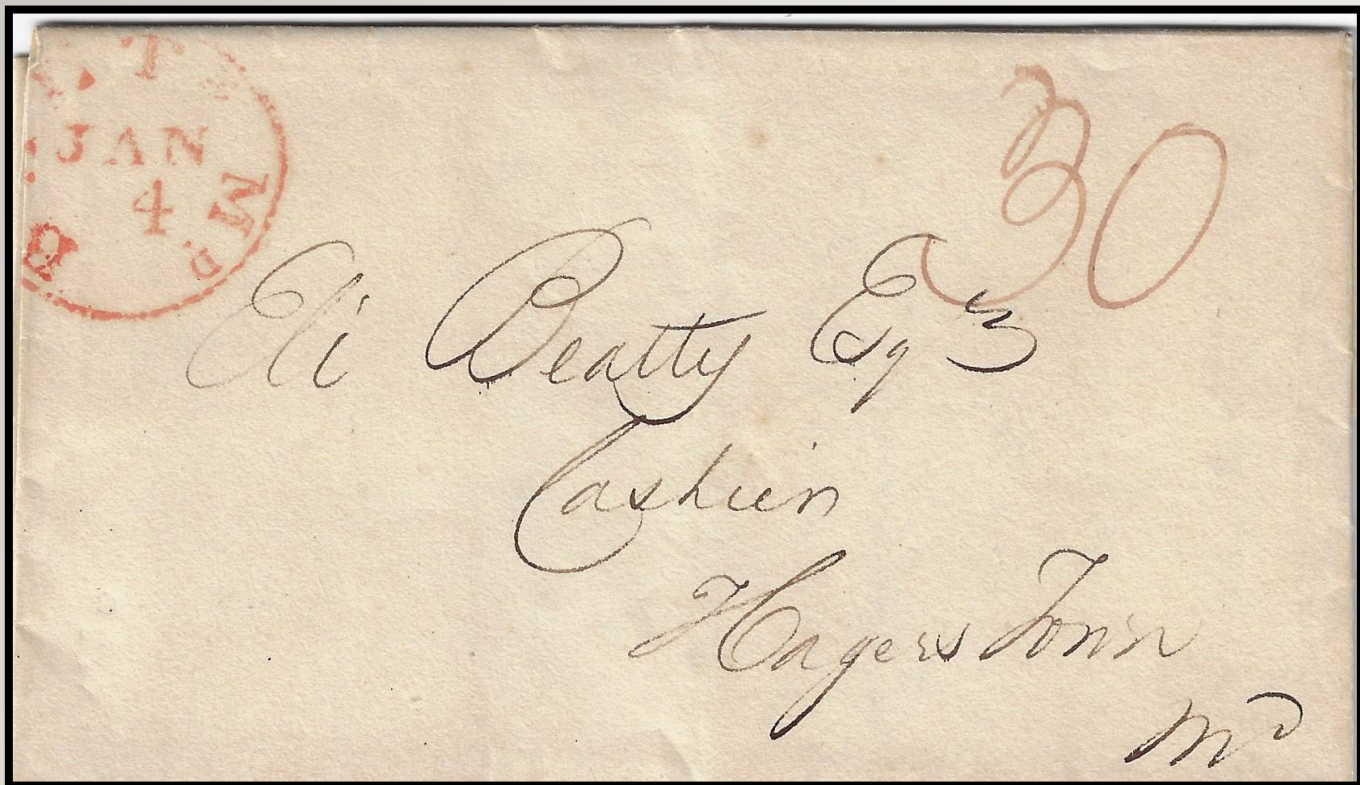 JAN
4
MD
30
Eli Beatty Esqr
Cashier
Hagers Town
Md